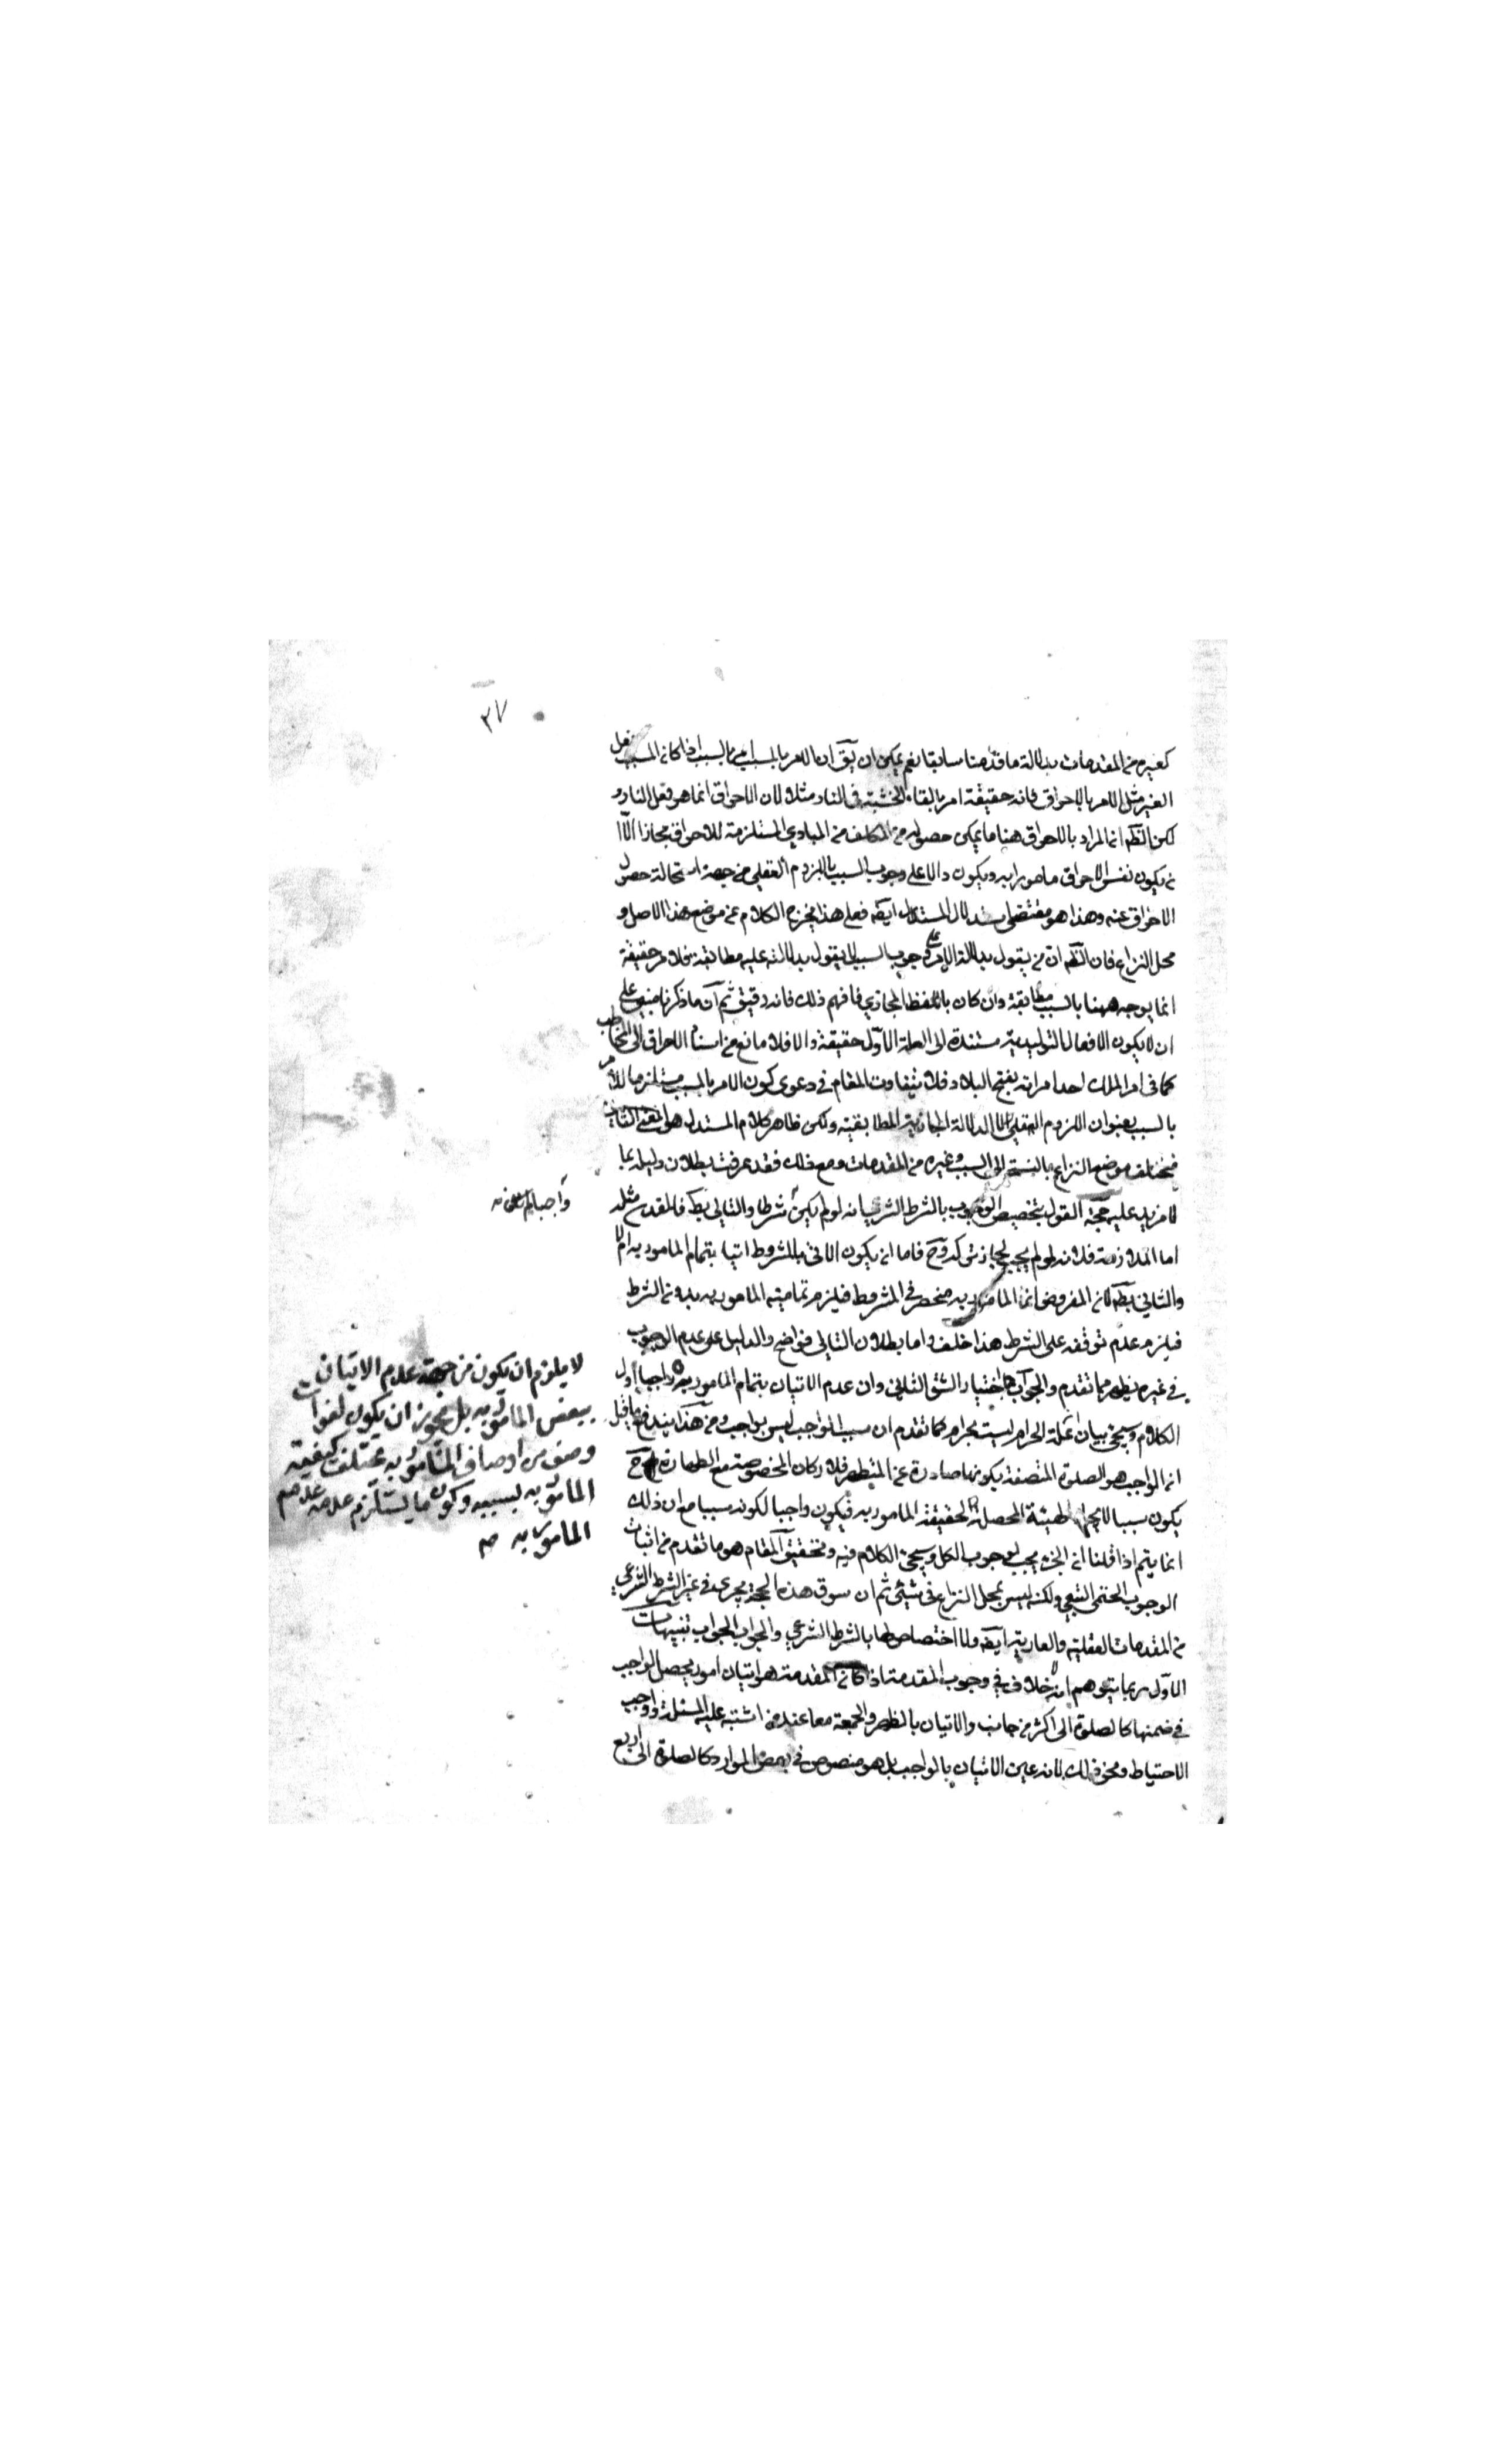 ٣٧
كغيره من المقدمات بدلالة ما قدمنا سابقا نعم يمكن ان يقٓ ان الامر بالمسبب امر بالسبب اذا كان المسبب فعل
الغير مثل الامر بالاحراق فانه حقيقة امر بالقاء الخشبة في النار مثلا لان الاحراق انما هو فعل النار و
لكن الظٓم ان المراد بالاحراق هنا ما يمكن حصوله من المكلف من المبادي المستلزمة للاحراق مجازا الا ا
ن يكون نفس الاحراق مامورا به ويكون دالا على وجوب السبب باللزوم العقلي من جهة استحالة حصول
الاحراق عنه وهذا هو مقتضى استدلال المستدل ايضٓ فعلى هذا يخرج الكلام عن موضع هذا الاصل و
محل النزاع فان الظٓم ان من يقول بدلالة الامر على وجوب السبب لا يقول بدلالته عليه مطابقة فلا امر حقيقة
انما يوجه ههنا بالسبب مطابقة وان كان باللفظ المجازي فافهم ذلك فانه دقيق ثم ان ما ذكرنا مبني على
ان لا يكون الافعال التوليدية مستندة الى العلة الاول حقيقة والا فلا مانع من اسناد الاحراق الى المخاطب
كما في امر الملك احد امرائه بفتح البلاد فلا يتفاوت المقام في دعوى كون الامر بالمسبب مستلزما للامر
بالسبب بعنوان اللزوم العقلي لا الدلالة المجازية المطابقية ولكن ظاهر كلام المستدل هو المعنى الثاني
فيختلف موضع النزاع بالنسبة الى السبب وغيره من المقدمات ومع ذلك فقد عرفت بطلان دليله بما
لا مزيد عليه حجة القول بتخصيص الوجوب بالشرط الشرعي انه لو لم يكن شرطا والتالي بطٓ فالمقدم مثله
واجبا لم يكن
اما الملازمة فلانه لو لم يجب لجاز تركه وحٓ فاما ان يكون الاتي بالمشروط اتيا بتمام المامور به ام لا
والثاني بطٓ لان المفروض انما المامور به منحصر في المشروط فيلزم تمامية المامور به بدون الشرط
فيلزم عدم توقفه على الشرط هذا خلف واما بطلان التالي فواضح والدليل على عدم الوجوب
في غيره يظهر مما تقدم والجواب باختيار الشق الثاني وان عدم الاتيان بتمام المامور به واجبا اول
لا يلزم ان يكون من جهة عدم الاتيان
ببعض المامور به بل يجوز ان يكون لفوات
وصف من اوصاف المامور به يختلف كيفية
المامور به بسببه وكون ما يستلزم عدمه عدم
المامور به
الكلام وسيجئ بيان ان علة الحرام ليست بحرام كما تقدم ان سبب الواجب ليس بواجب ومن هذا يندفع ما قيل
ان الواجب هو الصلوة المتصفة بكونها صادرة عن المتطهر فلاركان المخصوصة مع الطهارة حٓ
يكون سببا لايجاد الهيئة المحصلة لحقيقة المامور به فيكون واجبا لكونه سببا مع ان ذلك
انما يتم اذا قلنا ان الجزء يجب لوجوب الكل وسيجئ الكلام فيه وتحقيق المقام هو ما تقدم من اثبات
الوجوب الحتمي التبعي ولكنه ليس بمحل النزاع في شيئ ثم ان سوق هذه الحجة يجري في غير الشرط الشرعي
من المقدمات العقلية والعادية ايضٓ ولا اختصاص لها بالشرط الشرعي والجواب الجواب تنبيهات
الاول ربما يتوهم انه لا خلاف في وجوب المقدمة اذا كان المقدمة هو اتيان امور يحصل الواجب
في ضمنها كالصلوة الى اكثر من جانب والاتيان بالظهر والجمعة معا عند من اشتبه عليه المسئلة وواجب
الاحتياط ونحو ذلك لانه عين الاتيان بالواجب بل هو منصوص في بعض الموارد كالصلوة الى اربع